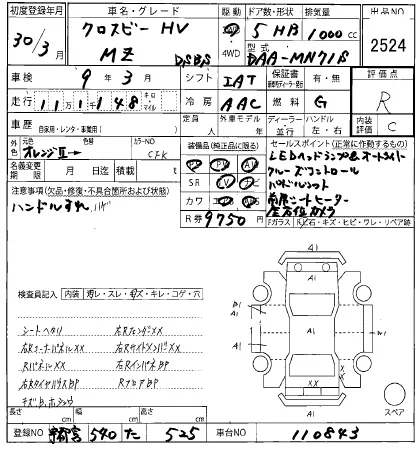 初度登録年月 車名・グレード 駆動 ドア数・形状 排気量 出品NO
30/3月 クロスビー HV MZ DSBS 4WD 5HB 1000cc 2524
型式 DAA-MN71S
車検 9年3月 シフト IAT 保証書 有・無 評価点
走行 111,148 キロ マイル 冷房 AAC 燃料 G R
車歴 自家用・レンタ・事業用 定員 人 外車モデル 年 ディーラー 並行 ハンドル 左・右 内装評価 C
外色 元色 オレンジⅡ 色替 カラーNO CFK
名義変更期限 月 日迄 積載量 t
装備品(純正品に限る) PS PW AW SR TV ナビ カワ ABS
R券 9750円
セールスポイント(正常に作動するもの)
LEDヘッドランプ&オートライト
クルーズコントロール
パドルシフト
前席シートヒーター
全方位カメラ
注意事項(欠品・修復・不具合箇所および状態)
ハンドルすれ,ハゲ
Fガラス 飛石・キズ・ヒビ・ワレ・リペア跡
検査員記入 内装 汚レ・スレ・キズ・キレ・コゲ・穴
シートヘタリ 右RフェンダXX
右RコーナーパネルXX 右RサイドメンバXX
RパネルXX 右RインパネBP
右RタイヤハウスBP RフロアBP
A1
A1
A1
A1
XX
A1
スペア
長さ cm 幅 cm 高さ cm
登録NO 宇都宮 540 た 525 車台NO 110843